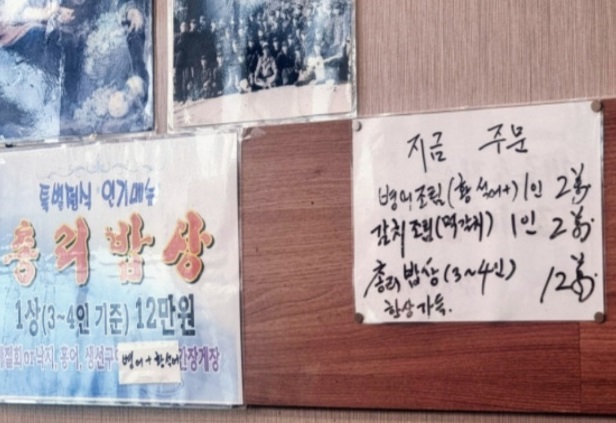 특별한식 인기메뉴
총리밥상
1상(3~4인 기준) 12만원
낙지, 홍어, 생선구
병어+황석어
간장게장
지금 주문
병어조림(황석어+)1인 2萬
갈치조림(먹갈치) 1인 2萬
총리밥상(3~4인) 12萬
한상가득.